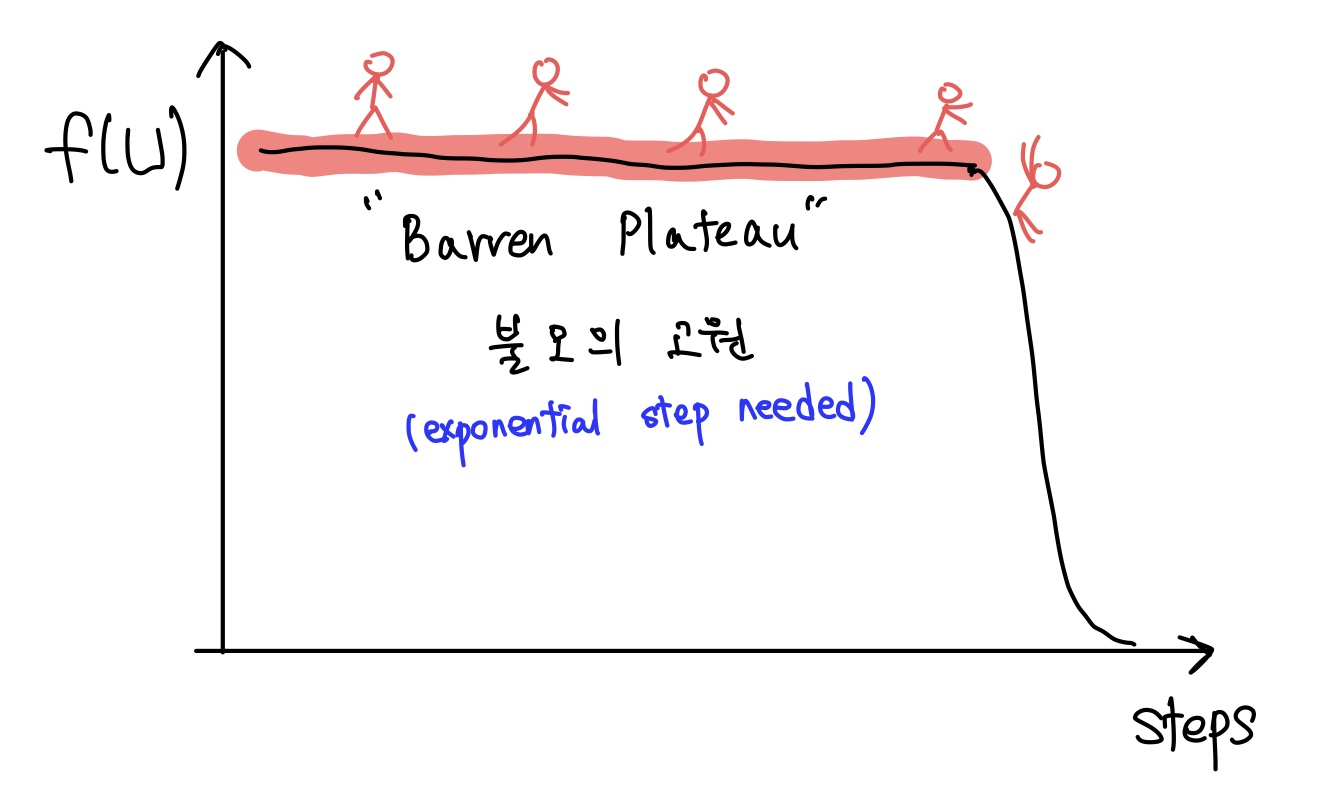 f(U)
"Barren Plateau"
불모의 고원
(exponential step needed)
steps